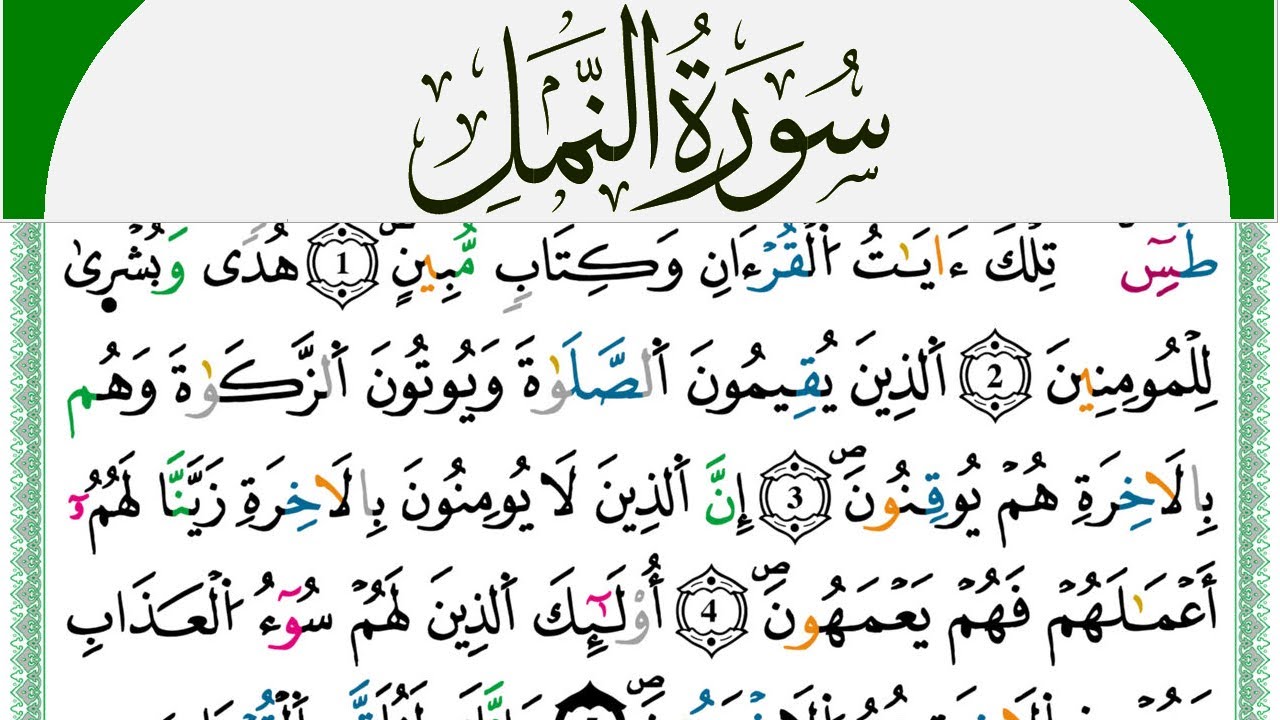 سُورَةُ النَّمْلِ
طَسِٓ تِلْكَ ءَايَٰتُ اُ۬لْقُرْءَانِ وَكِتَابٖ مُّبِينٍۖ 1 هُدىٗ وَبُشْر۪ىٰ
لِلْمُومِنِينَ 2 اَ۬لذِينَ يُقِيمُونَ اَ۬لصَّلَوٰةَ وَيُوتُونَ اَ۬لزَّكَوٰةَ وَهُم
بِالَاخِرَةِ هُمْ يُوقِنُونَۖ 3 إِنَّ اَ۬لذِينَ لَا يُومِنُونَ بِالَاخِرَةِ زَيَّنَّا لَهُمُۥٓ
أَعْمَٰلَهُمْ فَهُمْ يَعْمَهُونَۖ 4 أُوْلَٰٓئِكَ اَ۬لذِينَ لَهُمْ سُوٓءُ اُ۬لْعَذَابِ